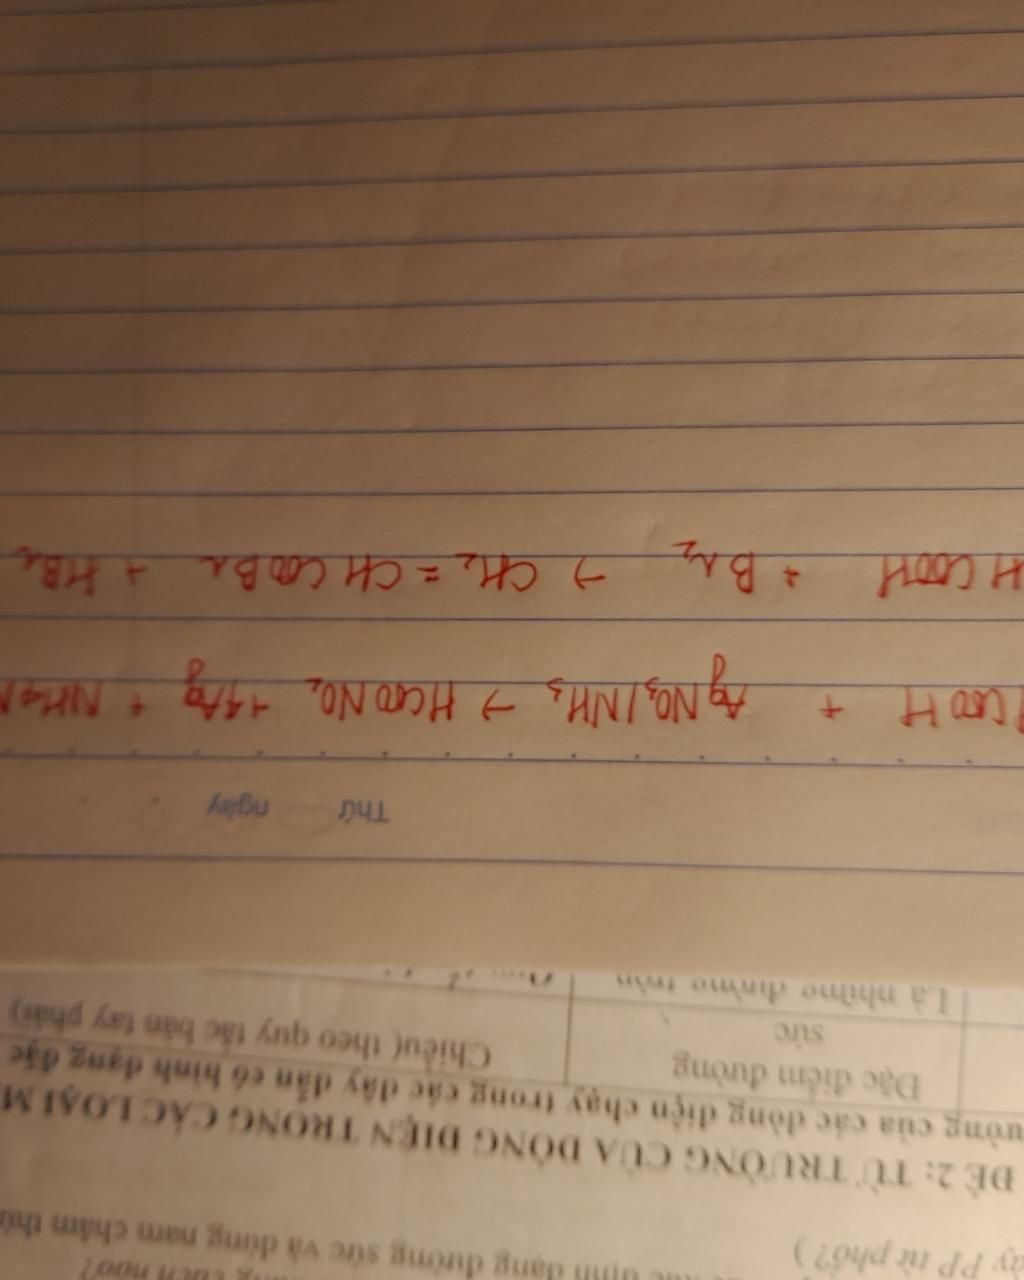 ây PP từ phổ? )
định dạng đường sức và dùng nam châm
ĐỀ 2: TỪ TRƯỜNG CỦA DÒNG ĐIỆN TRONG CÁC LOẠI M
ường của các dòng điện chạy trong các dây dẫn có hình dạng đặc
Đặc điểm đường sức
Chiều( theo quy tắc bàn tay phải)
Là những đường tròn
Thứ ngày
COOH + AgNO3/NH3 → HCOONO2 + Ag + NH4N
HCOOH + Br2 → CH2 = CHCOOBr + HBr